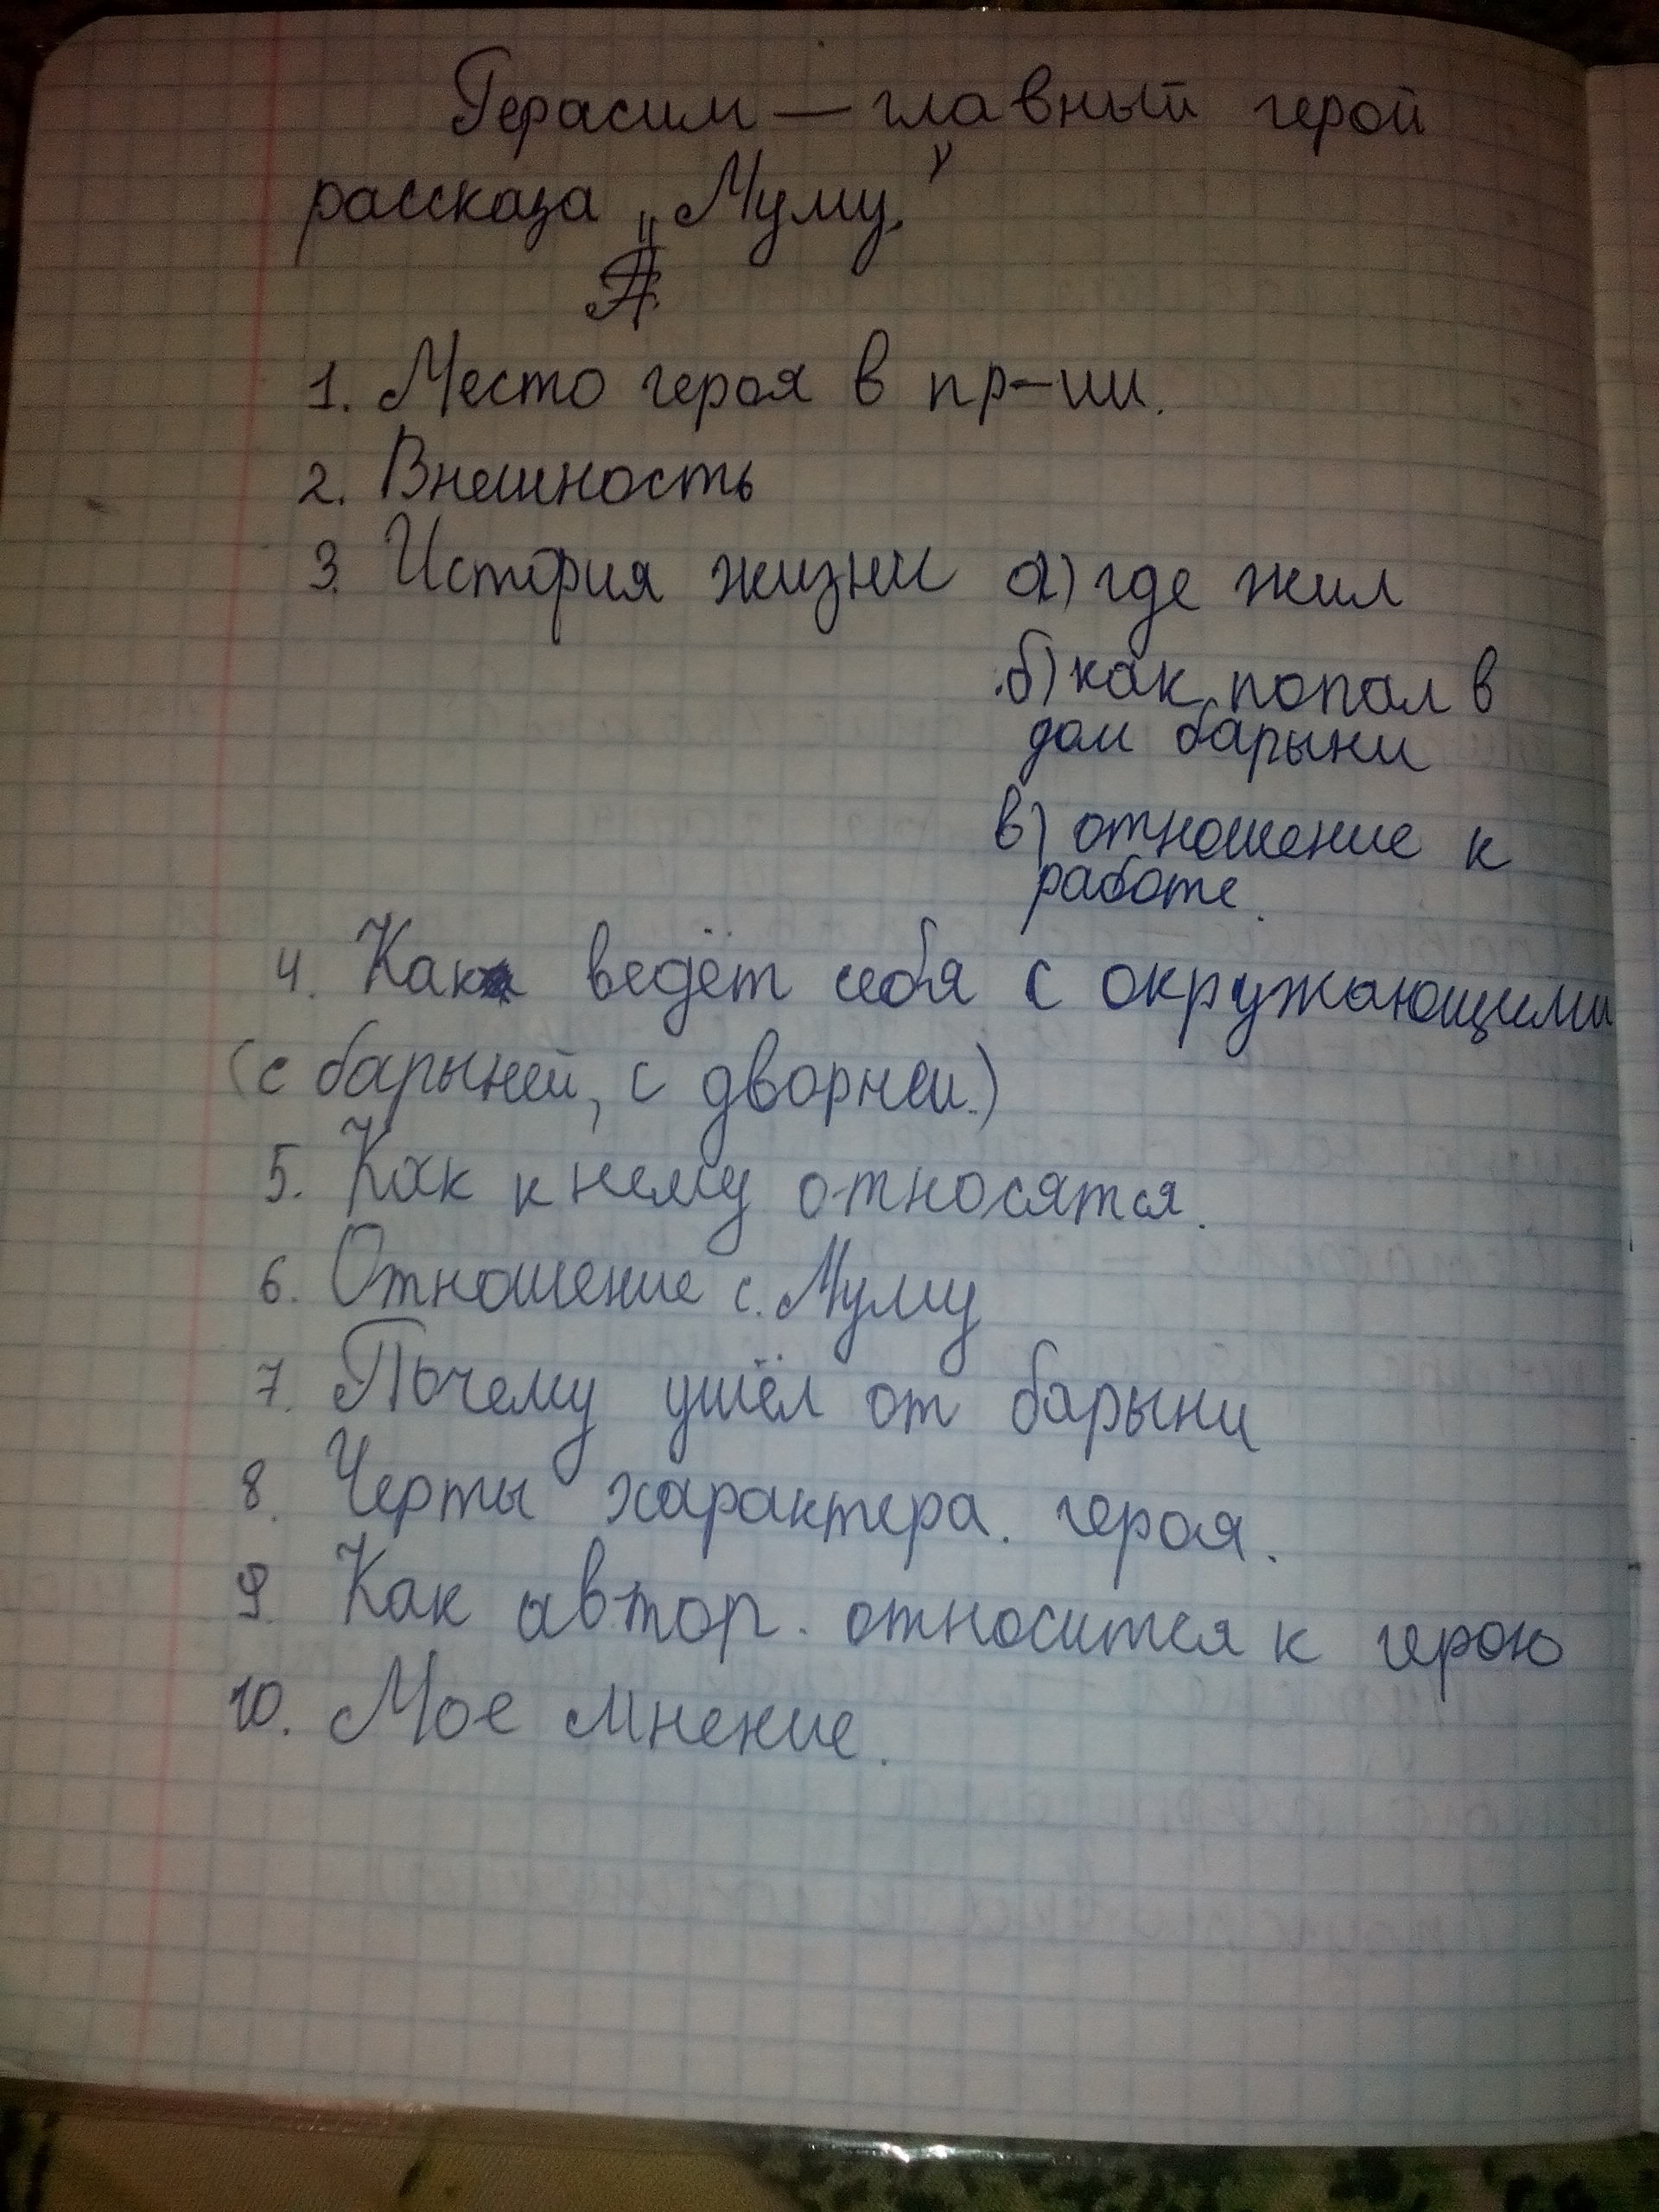 Герасим — главный герой
рассказа „Муму"
1. Место героя в пр-ии.
2. Внешность
3. История жизни а) где жил
б) как попал в
дом барыни
в) отношение к
работе.
4. Как ведёт себя с окружающими
(с барыней, с дворней.)
5. Как к нему относятся.
6. Отношение с. Муму
7. Почему ушёл от барыни
8. Черты характера. героя.
9. Как автор. относится к герою
10. Мое мнение.